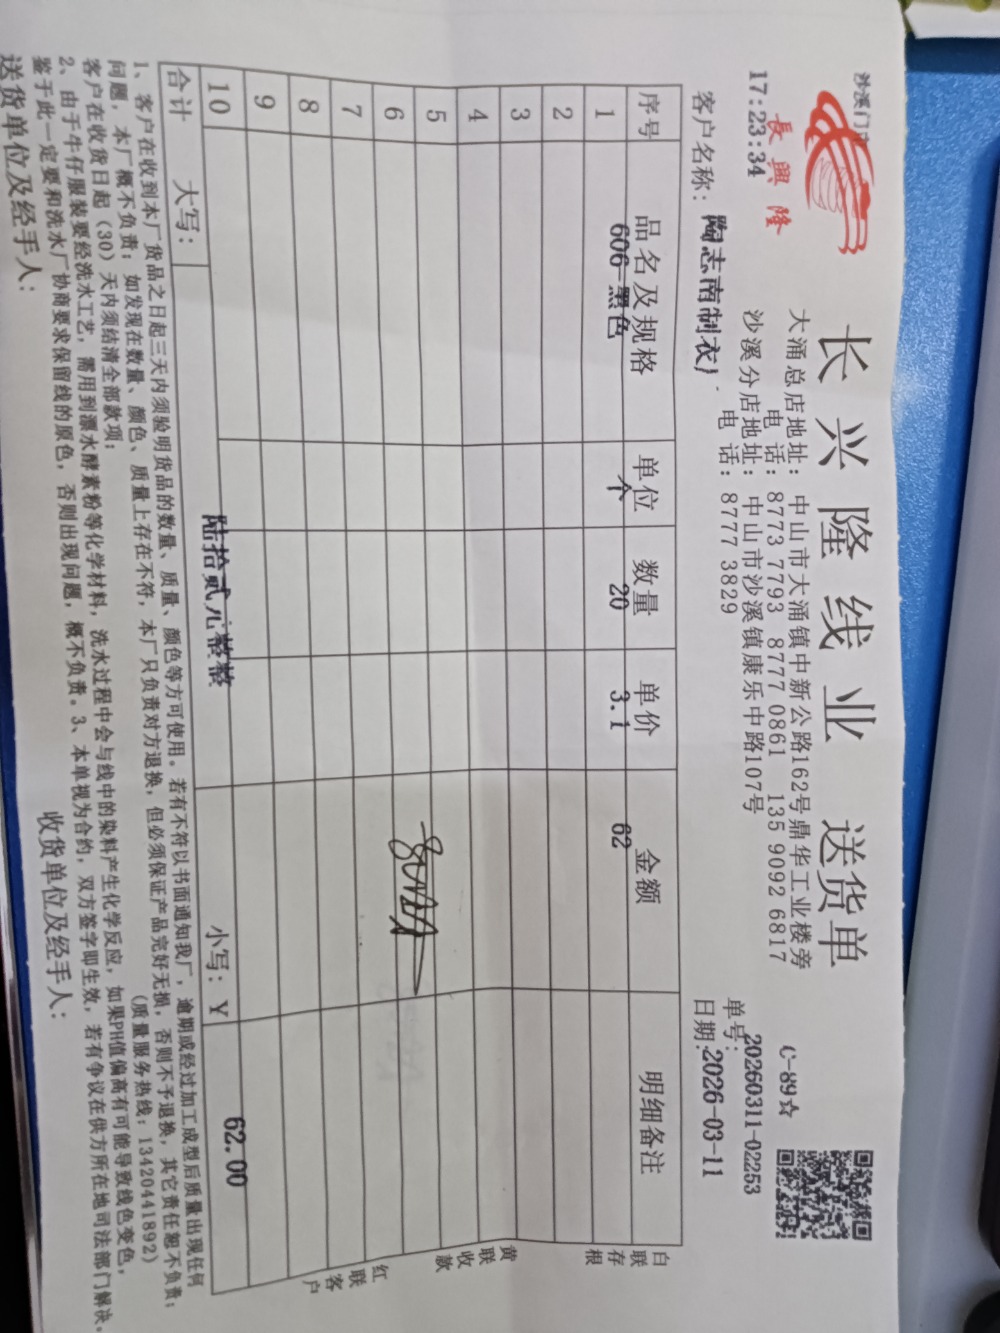 沙溪门市
長興隆
17:23:34
长兴隆线业 送货单
大涌总店地址：中山市大涌镇中新公路162号鼎华工业楼旁
电 话：8773 7793 8777 0861 135 9092 6817
沙溪分店地址：中山市沙溪镇康乐中路107号
电 话：8777 3829
C-89☆
单号：20260311-02253
客户名称：陶志南制衣厂
日期：2026-03-11
序号 品名及规格 单位 数量 单价 金额 明细备注
1 606-黑色 个 20 3.1 62
2
3
4
5
6
7
8
9
10
合计 大写： 陆拾贰元整整 小写：￥ 62.00
白联存根
黄联收款
红联客户
1、客户在收到本厂货品之日起三天内须验明货品的数量、质量、颜色等方可使用。若有不符以书面通知我厂，逾期或经过加工成型后质量出现任何
问题，本厂概不负责；如发现在数量、颜色、质量上存在不符，本厂只负责对方退换，但必须保证产品完好无损，否则不予退换，其它责任恕不负责；
客户在收货日起（30）天内须结清全部款项； (质量服务热线：13420441892)
2、由于牛仔服装要经洗水工艺，需用到漂水酵素粉等化学材料，洗水过程中会与线中的染料产生化学反应，如果PH值偏高有可能导致线色变色，
鉴于此一定要和洗水厂协商要求保留线的原色，否则出现问题，概不负责。3、本单视为合约，双方签字即生效，若有争议在供方所在地司法部门解决。
送货单位及经手人： 收货单位及经手人：